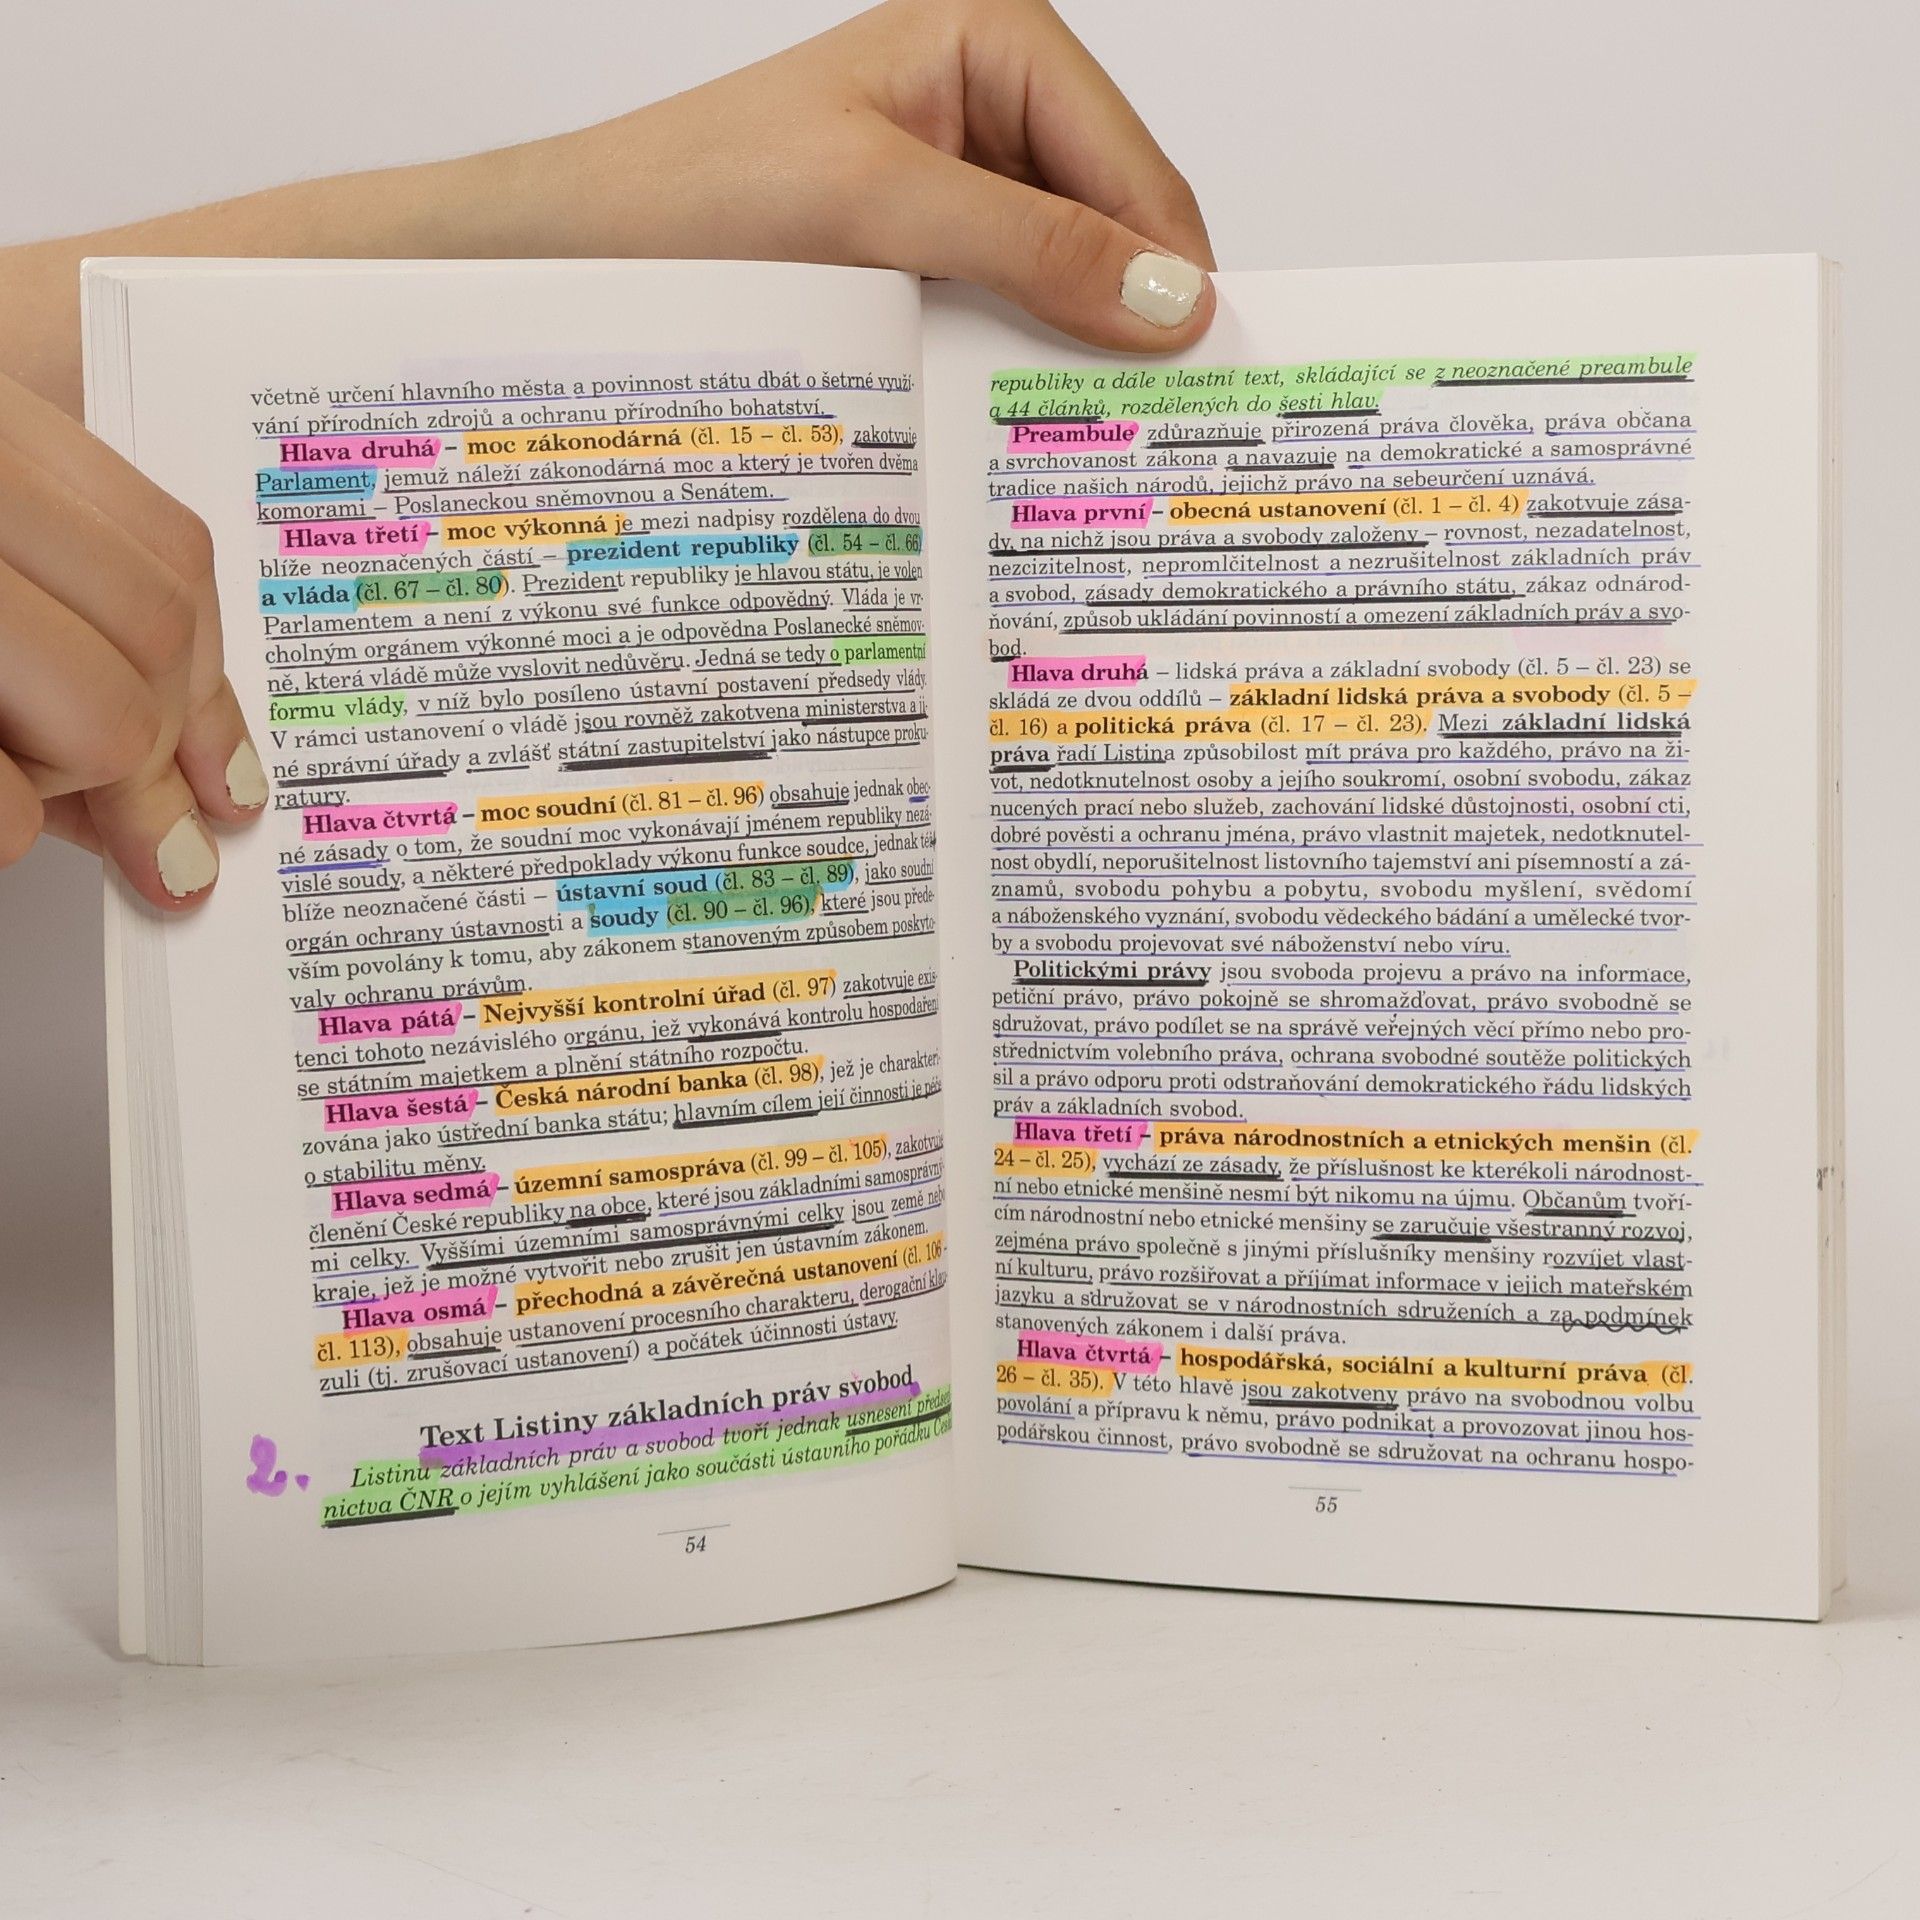 včetně určení hlavního města a povinnost státu dbát o šetrné využí-
vání přírodních zdrojů a ochranu přírodního bohatství.
Hlava druhá – moc zákonodárná (čl. 15 – čl. 53), zakotvuje
Parlament, jemuž náleží zákonodárná moc a který je tvořen dvěma
komorami – Poslaneckou sněmovnou a Senátem.
Hlava třetí – moc výkonná je mezi nadpisy rozdělena do dvou
blíže neoznačených částí – prezident republiky (čl. 54 – čl. 66)
a vláda (čl. 67 – čl. 80). Prezident republiky je hlavou státu, je volen
Parlamentem a není z výkonu své funkce odpovědný. Vláda je vr-
cholným orgánem výkonné moci a je odpovědna Poslanecké sněmov-
ně, která vládě může vyslovit nedůvěru. Jedná se tedy o parlamentní
formu vlády, v níž bylo posíleno ústavní postavení předsedy vlády.
V rámci ustanovení o vládě jsou rovněž zakotvena ministerstva a ji-
né správní úřady a zvlášť státní zastupitelství jako nástupce proku-
ratury.
Hlava čtvrtá – moc soudní (čl. 81 – čl. 96) obsahuje jednak obec-
né zásady o tom, že soudní moc vykonávají jménem republiky nezá-
vislé soudy, a některé předpoklady výkonu funkce soudce, jednak též
blíže neoznačené části – ústavní soud (čl. 83 – čl. 89), jako soudní
orgán ochrany ústavnosti a soudy (čl. 90 – čl. 96), které jsou přede-
vším povolány k tomu, aby zákonem stanoveným způsobem poskyto-
valy ochranu právům.
Hlava pátá – Nejvyšší kontrolní úřad (čl. 97) zakotvuje exis-
tenci tohoto nezávislého orgánu, jež vykonává kontrolu hospodaření
se státním majetkem a plnění státního rozpočtu.
Hlava šestá – Česká národní banka (čl. 98), jež je charakteri-
zována jako ústřední banka státu; hlavním cílem její činnosti je péče
o stabilitu měny.
Hlava sedmá – územní samospráva (čl. 99 – čl. 105), zakotvuje
členění České republiky na obce, které jsou základními samosprávný-
mi celky. Vyššími územními samosprávnými celky jsou země nebo
kraje, jež je možné vytvořit nebo zrušit jen ústavním zákonem.
Hlava osmá – přechodná a závěrečná ustanovení (čl. 106 –
čl. 113), obsahuje ustanovení procesního charakteru, derogační klau-
zuli (tj. zrušovací ustanovení) a počátek účinnosti ústavy.
Text Listiny základních práv svobod
2.
Listinu základních práv a svobod tvoří jednak usnesení předsed
nictva ČNR o jejím vyhlášení jako součásti ústavního pořádku České
54
republiky a dále vlastní text, skládající se z neoznačené preambule
a 44 článků, rozdělených do šesti hlav.
Preambule zdůrazňuje přirozená práva člověka, práva občana
a svrchovanost zákona a navazuje na demokratické a samosprávné
tradice našich národů, jejichž právo na sebeurčení uznává.
Hlava první – obecná ustanovení (čl. 1 – čl. 4) zakotvuje zása-
dy, na nichž jsou práva a svobody založeny – rovnost, nezadatelnost,
nezcizitelnost, nepromlčitelnost a nezrušitelnost základních práv
a svobod, zásady demokratického a právního státu, zákaz odnárod-
ňování, způsob ukládání povinností a omezení základních práv a svo-
bod.
Hlava druhá – lidská práva a základní svobody (čl. 5 – čl. 23) se
skládá ze dvou oddílů – základní lidská práva a svobody (čl. 5 –
čl. 16) a politická práva (čl. 17 – čl. 23). Mezi základní lidská
práva řadí Listina způsobilost mít práva pro každého, právo na ži-
vot, nedotknutelnost osoby a jejího soukromí, osobní svobodu, zákaz
nucených prací nebo služeb, zachování lidské důstojnosti, osobní cti,
dobré pověsti a ochranu jména, právo vlastnit majetek, nedotknutel-
nost obydlí, neporušitelnost listovního tajemství ani písemností a zá-
znamů, svobodu pohybu a pobytu, svobodu myšlení, svědomí
a náboženského vyznání, svobodu vědeckého bádání a umělecké tvor-
by a svobodu projevovat své náboženství nebo víru.
Politickými právy jsou svoboda projevu a právo na informace,
petiční právo, právo pokojně se shromažďovat, právo svobodně se
sdružovat, právo podílet se na správě veřejných věcí přímo nebo pro-
střednictvím volebního práva, ochrana svobodné soutěže politických
sil a právo odporu proti odstraňování demokratického řádu lidských
práv a základních svobod.
Hlava třetí – práva národnostních a etnických menšin (čl.
24 – čl. 25), vychází ze zásady, že příslušnost ke kterékoli národnost-
ní nebo etnické menšině nesmí být nikomu na újmu. Občanům tvoří-
cím národnostní nebo etnické menšiny se zaručuje všestranný rozvoj,
zejména právo společně s jinými příslušníky menšiny rozvíjet vlast-
ní kulturu, právo rozšiřovat a příjímat informace v jejich mateřském
jazyku a sdružovat se v národnostních sdruženích a za podmínek
stanovených zákonem i další práva.
Hlava čtvrtá – hospodářská, sociální a kulturní práva (čl.
26 – čl. 35). V této hlavě jsou zakotveny právo na svobodnou volbu
povolání a přípravu k němu, právo podnikat a provozovat jinou hos-
podářskou činnost, právo svobodně se sdružovat na ochranu hospo-
55